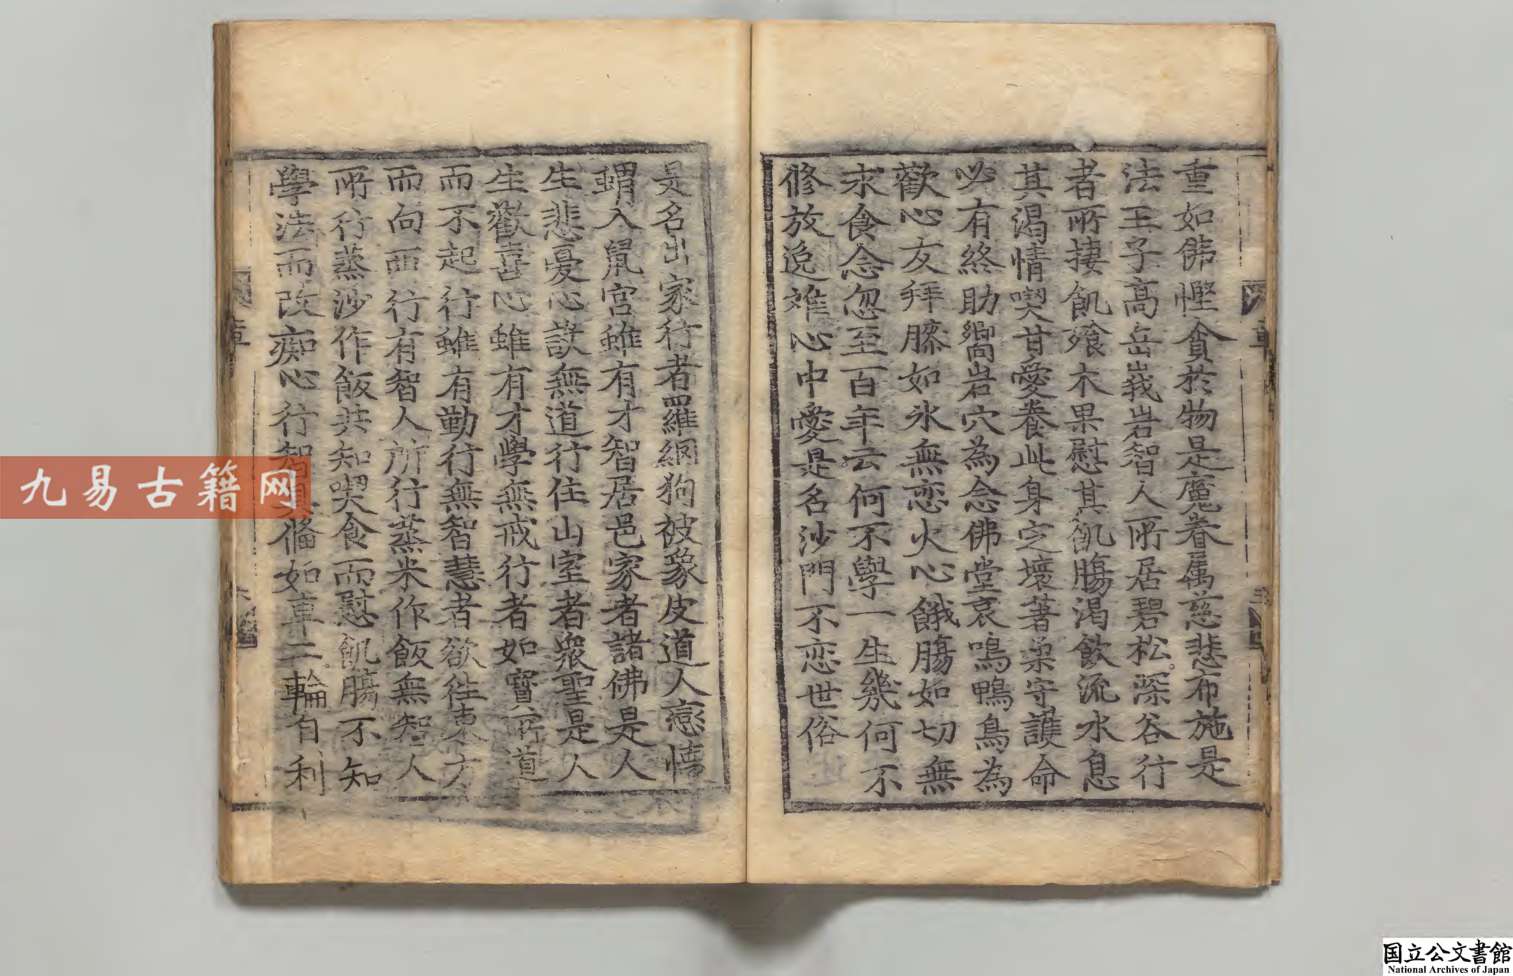 重如佛慳貪於物是魔眷属慈悲布施是
法王子高岳峩岩智人所居碧松深谷行
者所捿飢飱木果慰其飢膓渴飮流水息
其渴情喫甘愛養此身㝎壞著柔守護命
必有終助嚮岩穴為念佛堂哀鳴鴨鳥為
歡心友拜膝如氷無恋火心餓膓如切無
求食念忽至百年云何不學一生幾何不
修放逸離心中愛是名沙門不恋世俗
是名出家行者羅網狗被象皮道人戀情
蝟入鼠宮雖有才智居邑家者諸佛是人
生悲憂心設無道行住山室者衆聖是人
生歡喜心雖有才學無戒行者如寳所道
而不起行雖有勤行無智慧者欲徃東方
而向西行有智人所行蒸米作飯無智人
所行蒸沙作飯共知喫食而慰飢膓不知
學法而改痴心行智具俻如車二輪自利
九易古籍网
国立公文書館
National Archives of Japan